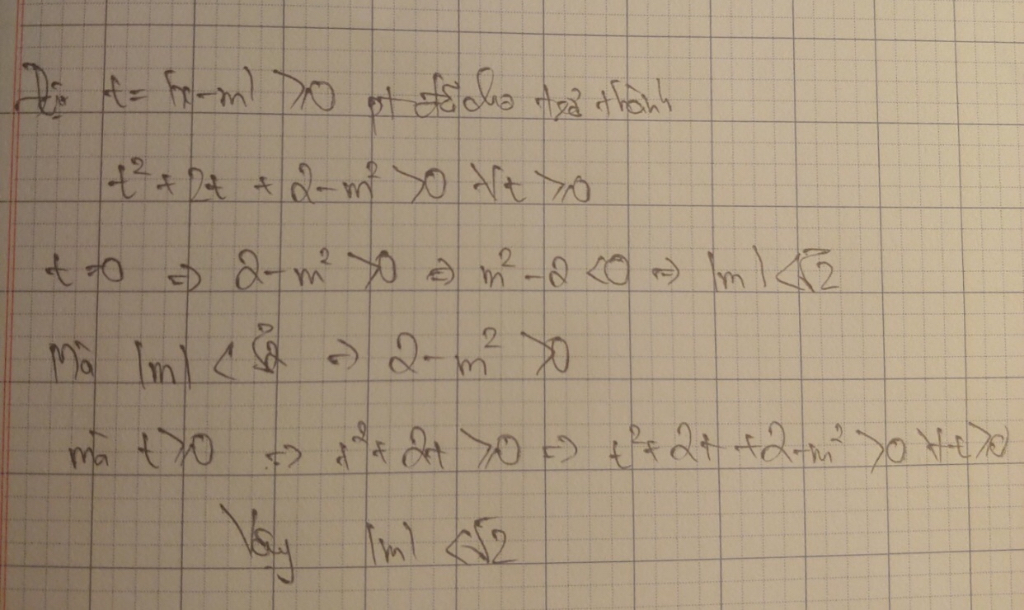 Đặt t = |x-m| ≥0 pt đã cho trở thành
t² + 2t + 2-m² >0 ∀t ≥0
t=0 ⇒ 2-m² >0 ⇒ m²-2 <0 ⇒ |m| <√2
Mà |m| < √2 ⇒ 2-m² >0
mà t≥0 ⇒ t²+2t ≥0 ⇒ t²+2t+2-m² >0 ∀t≥0
Vậy |m| <√2